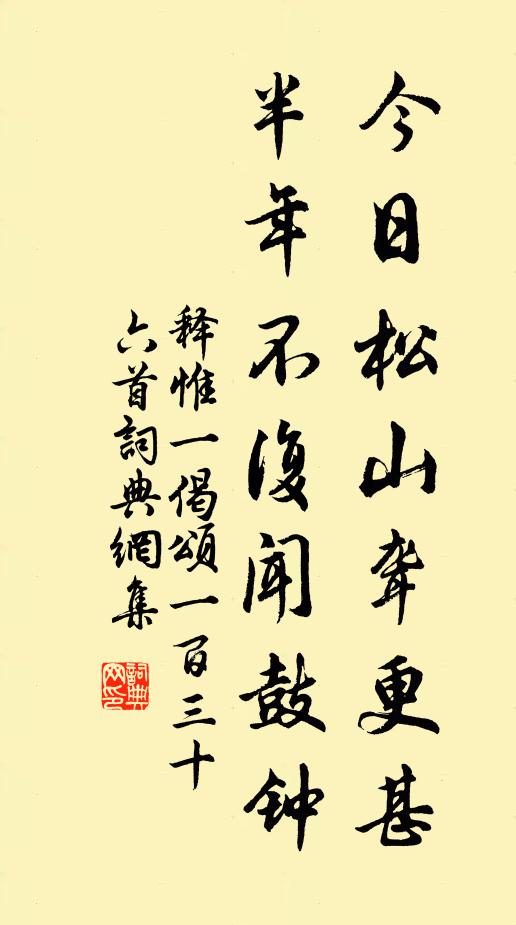 今日松山聋更甚
半年不復闻鼓钟
释惟一偈頌一百三十
六首詞典網集
詞典
网印